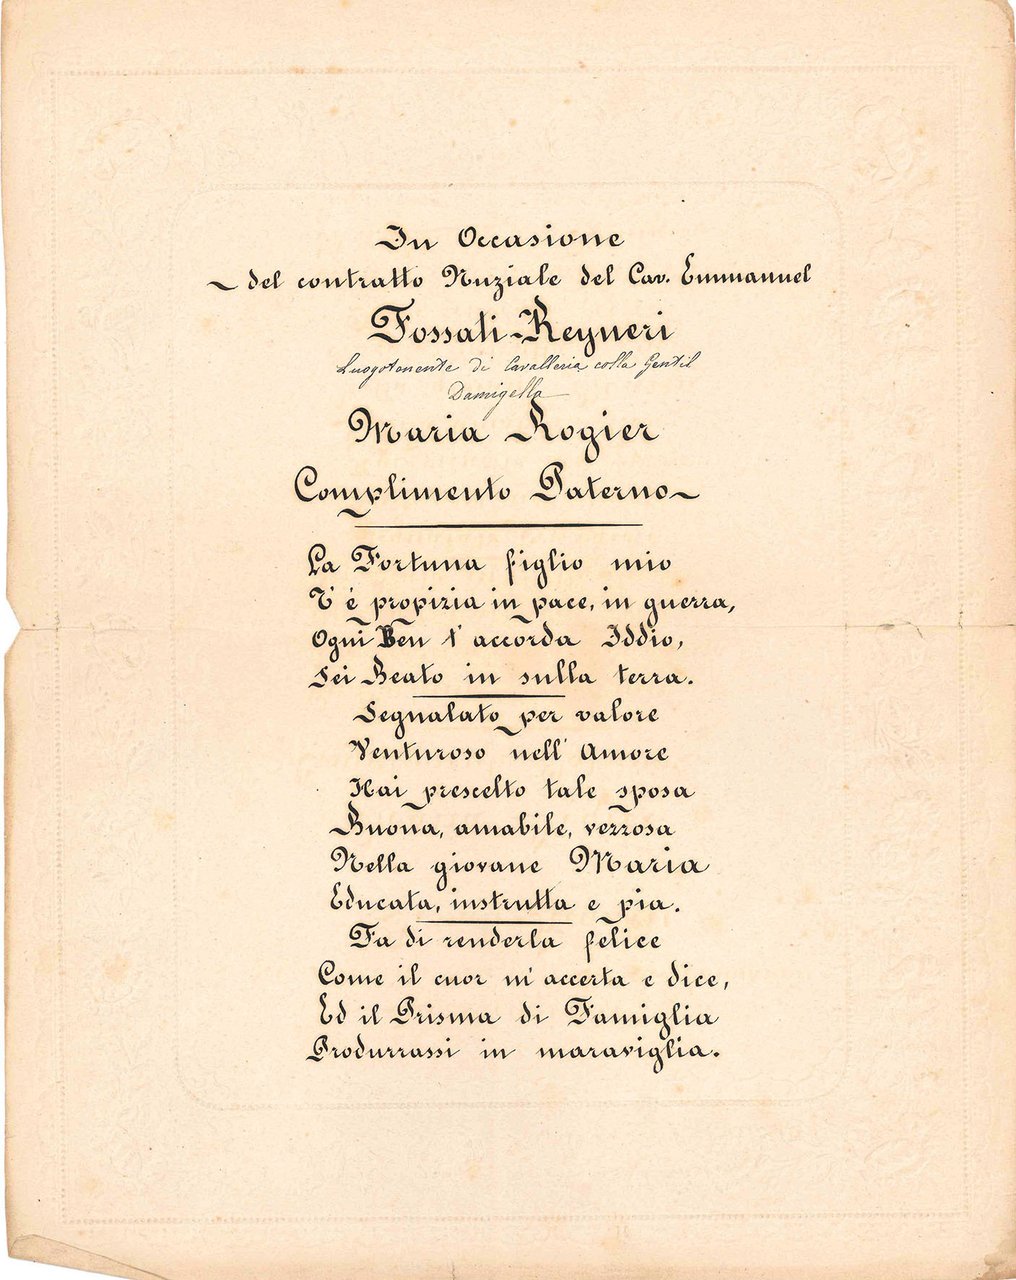 In Occasione
del contratto Nuziale del Cav. Emmanuel
Fossati-Reyneri
Luogotenente di Cavalleria colla Gentil
Damigella
Maria Rogier
Complimento Paterno
La Fortuna figlio mio
T'è propizia in pace, in guerra,
Ogni Ben t'accorda Iddio,
Sei Beato in sulla terra.
Segnalato per valore
Venturoso nell'Amore
Hai prescelto tale sposa
Buona, amabile, vezzosa
Nella giovane Maria
Educata, instrutta e pia.
Fa di renderla felice
Come il cuor m'accerta e dice,
Ed il Prisma di Famiglia
Produrrassi in maraviglia.